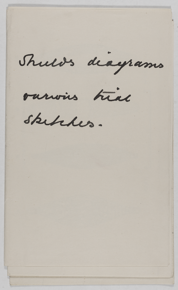 Shields diagrams
various trial
sketches.